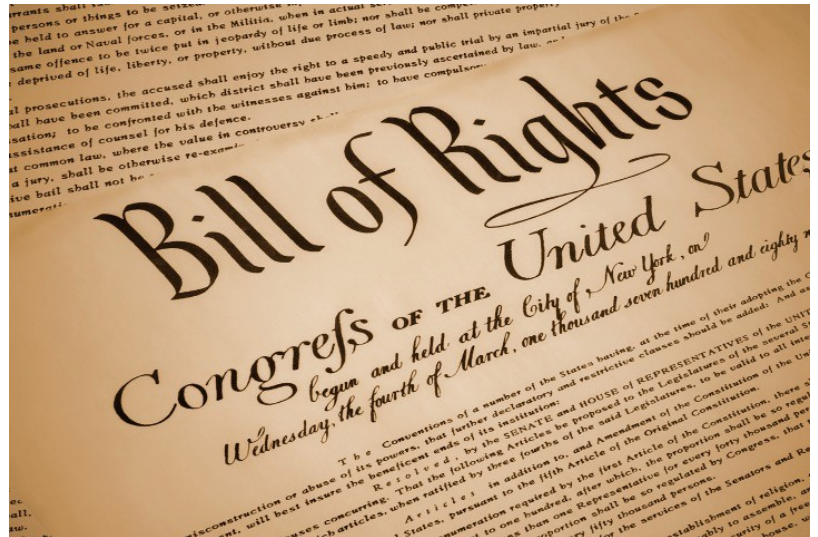 rrants shall
persons or things to be seize
be held to answer for a capital, or otherwise
the land or Naval forces, or in the Militia, when in actual se
same offence to be twice put in jeopardy of life or limb; nor shall be compe
deprived of life, liberty, or property, without due process of law; nor shall private property
al prosecutions, the accused shall enjoy the right to a speedy and public trial by an impartial jury of the
all have been committed, which district shall have been previously ascertained by law, and
sation; to be confronted with the witnesses against him; to have compulsory
ssistance of counsel for his defence.
t common law, where the value in controversy shall
a jury, shall be otherwise re-exami
ive bail shall not be
numerati
Bill of Rights
Congreſs OF THE United States
begun and held at the City of New York, on
Wednesday, the fourth of March, one thousand seven hundred and eighty n
The Conventions of a number of the States having, at the time of their adopting the C
isconstruction or abuse of its powers, that further declaratory and restrictive clauses should be added: And as
ent, will best insure the beneficent ends of its institution:
Resolved, by the SENATE and HOUSE of REPRESENTATIVES of the UNIT
uses concurring. That the following Articles be proposed to the Legislatures of the several St
ch articles, when ratified by three fourths of the said Legislatures, to be valid to all inte
Articles in addition to, and Amendment of the Constitution of the Uni
States, pursuant to the fifth Article of the Original Constitution.
numeration required by the first Article of the Constitution, there sh
to one hundred, after which, the proportion shall be so regul
s than one Representative for every forty thousand per
proportion shall be so regulated by Congress, that
ry fifty thousand persons.
for the services of the Senators and Re
establishment of religion,
ably to assemble, an
curity of a free
house, w